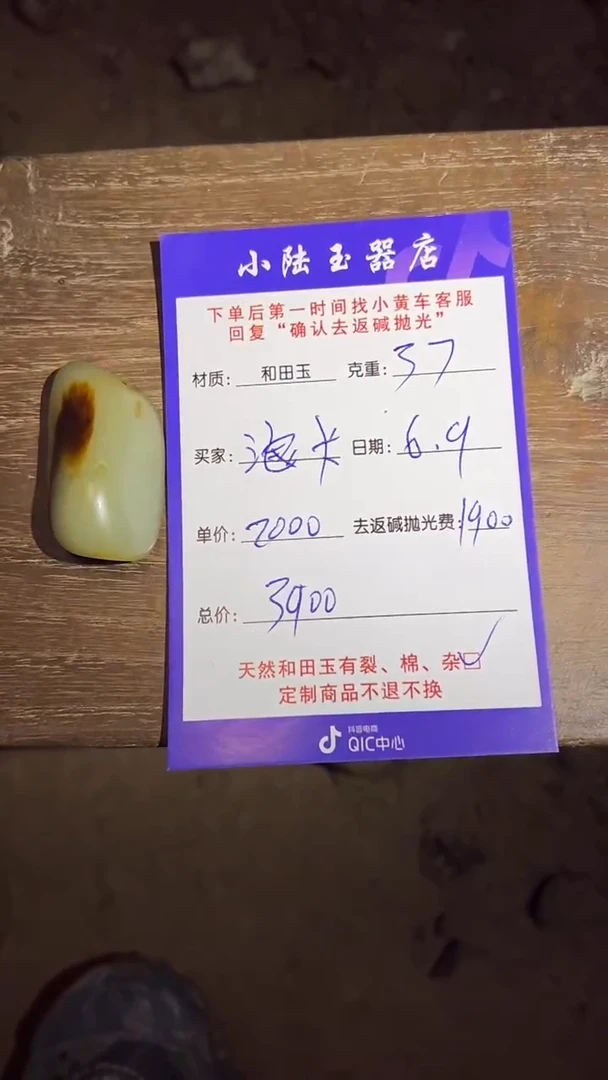 小陆玉器店
下单后第一时间找小黄车客服
回复“确认去返碱抛光”
材质: 和田玉 克重: 37
买家: 日期: 6.9
单价: 2000 去返碱抛光费: 1900
总价: 3900
天然和田玉有裂、棉、杂
定制商品不退不换
抖音电商
QIC中心